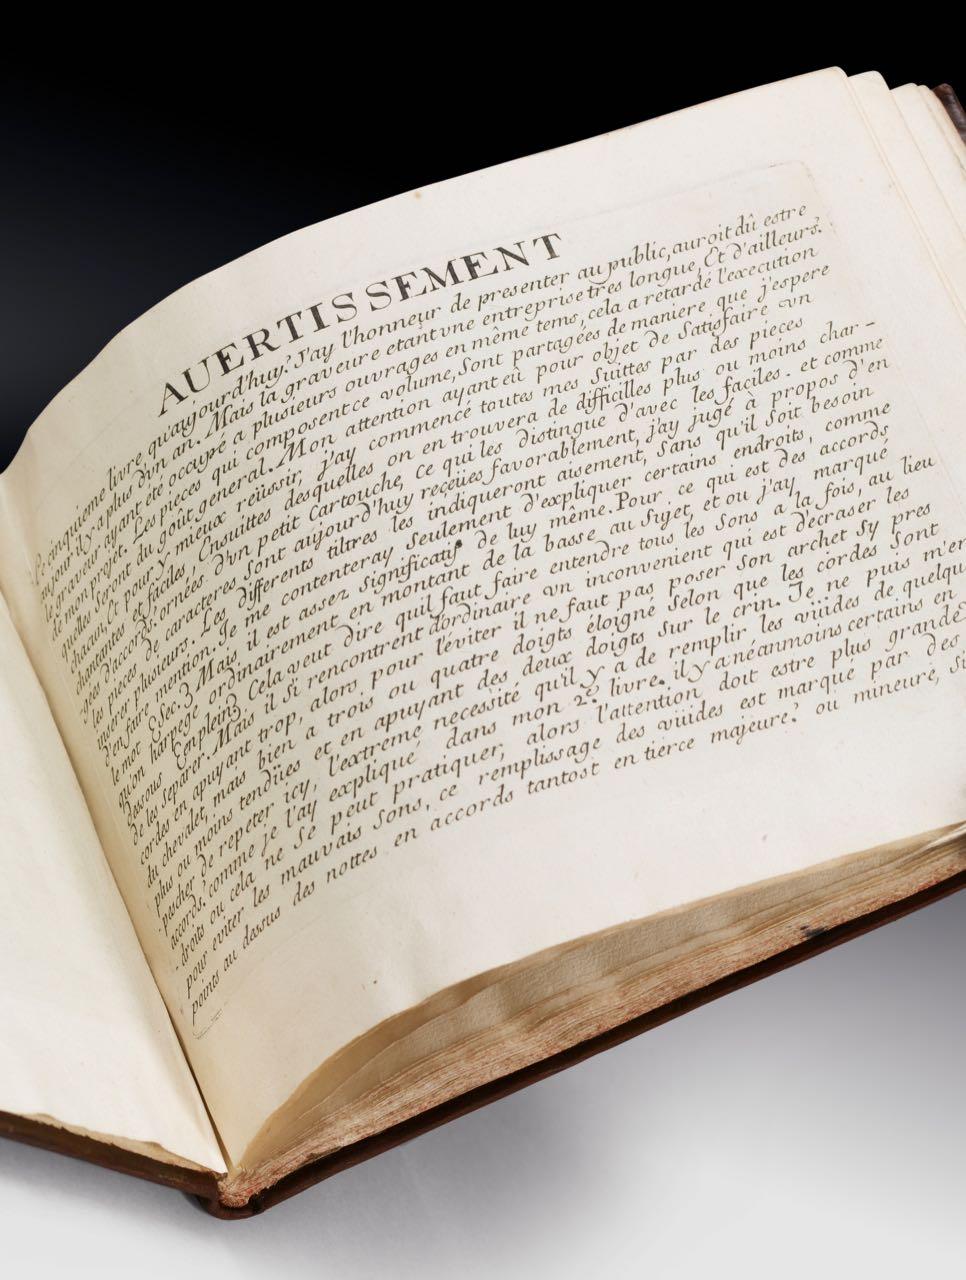 AUERTISSEMENT
Ce cinquieme livre quayjourd'huy? J'ay l'honneur de presenter au public, auroit dû estre
mjour il y a plus d'vn an. Mais la graveure etant vne entreprise tres longue, Et d'ailleurs
le graveur ayant été occupé a plusieurs ouvrages en même tems, cela a retardé l'execution
de mon projet. Les pieces qui composent ce volume, Sont partagées de maniere que j'espere
quelles Seront du goût general. Mon attention ayant eû pour objet de Satisfaire vn
chacun, Et pour y mieux reüissir, j'ay commencé toutes mes Suittes par des pieces
chantantes et faciles, Ensuittes desquelles on en trouvera de difficilles plus ou moins char-
-gées d'accords, ornées d'vn petit cartouche, ce qui les distingue d'avec les faciles. et comme
les pieces de caracteres Sont aujourd'huy reçeües favorablement, j'ay jugé à propos d'en
inserer plusieurs. Les differents tiltres les indiqueront aisement, Sans qu'il Soit besoin
d'en faire mention. Je me contenteray Seulement d'expliquer certains endroits, comme
le mot (Sec.) Mais il est assez Significatif de luy même. Pour ce qui est des accords
qu'on harpege ordinairement en montant de la basse au Sujet, et ou j'ay marqué
dessous (enplein) Cela veut dire quil faut faire entendre tous les Sons a la fois, au lieu
de les separer. Mais il Si rencontrent d'ordinaire vn inconvenient qui est d'ecraser les
cordes en apuyant trop, alors pour l'éviter il ne faut pas poser Son archet Sy pres
du chevalet, mais bien a trois ou quatre doigts éloigné Selon que les cordes Sont
plus ou moins tendües et en apuyant des deux doigts Sur le crin. Je ne puis m'em
-pescher de repeter icy, l'extreme necessité qu'il y a de remplir les vüides de quelqu
accords. comme je l'ay expliqué dans mon 2e livre. il y a néanmoins certains en
-droits ou cela ne Se peut pratiquer, alors l'attention doit estre plus grande
pour eviter les mauvais Sons, ce remplissage des vüides est marqué par des
points au dessus des nottes en accords tantost en tierce majeure? ou mineure, Si